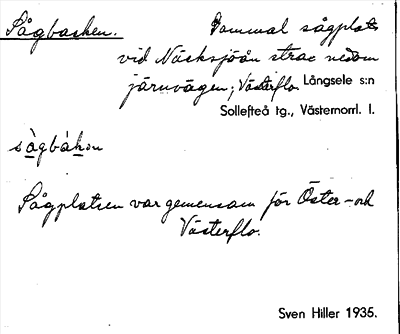 Sågbacken. Gammal sågplats
vid Näcksjöån strax nedom
järnvägen; Västerflo. Långsele s:n
Sollefteå tg., Västernorrl. l.
sågbàkən
Sågplatsen var gemensam för Öster- och
Västerflo.
Sven Hiller 1935.